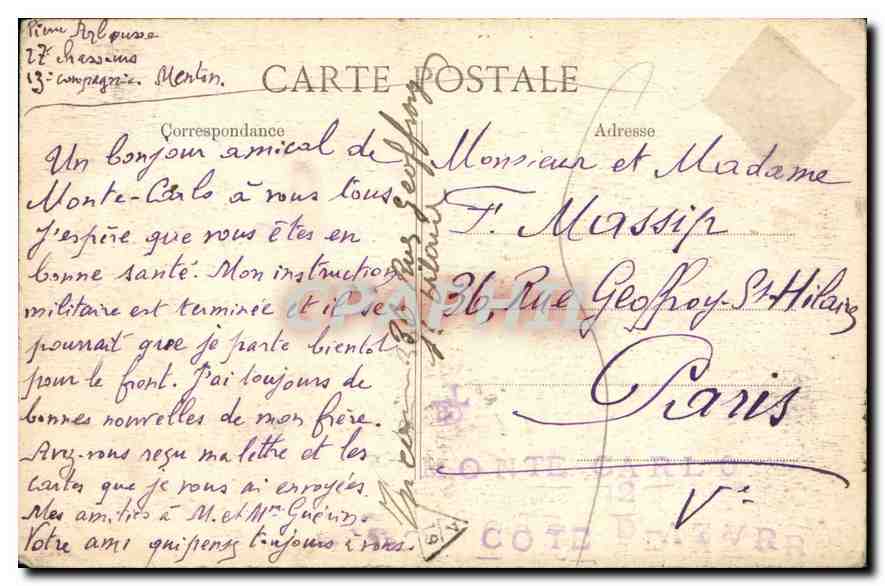 Pierre Arlousse
27e Chasseurs
13e compagnie. Menton.
CARTE POSTALE
Correspondance
Adresse
Un bonjour amical de
Monte-Carlo à vous tous
J'espère que vous êtes en
bonne santé. Mon instruction
militaire est terminée et il se
pourrait que je parte bientôt
pour le front. J'ai toujours de
bonnes nouvelles de mon frère.
Avez-vous reçu ma lettre et les
cartes que je vous ai envoyées
Mes amitiés à M. et Mme Guérin.
Votre ami qui pense toujours à vous.
Inconnu 36 Rue Geoffroy
St Hilaire
Monsieur et Madame
F. Massip
36, Rue Geoffroy-St-Hilaire
Paris
Ve
MONTE CARLO
COTE D'AZUR
CPAPHIL